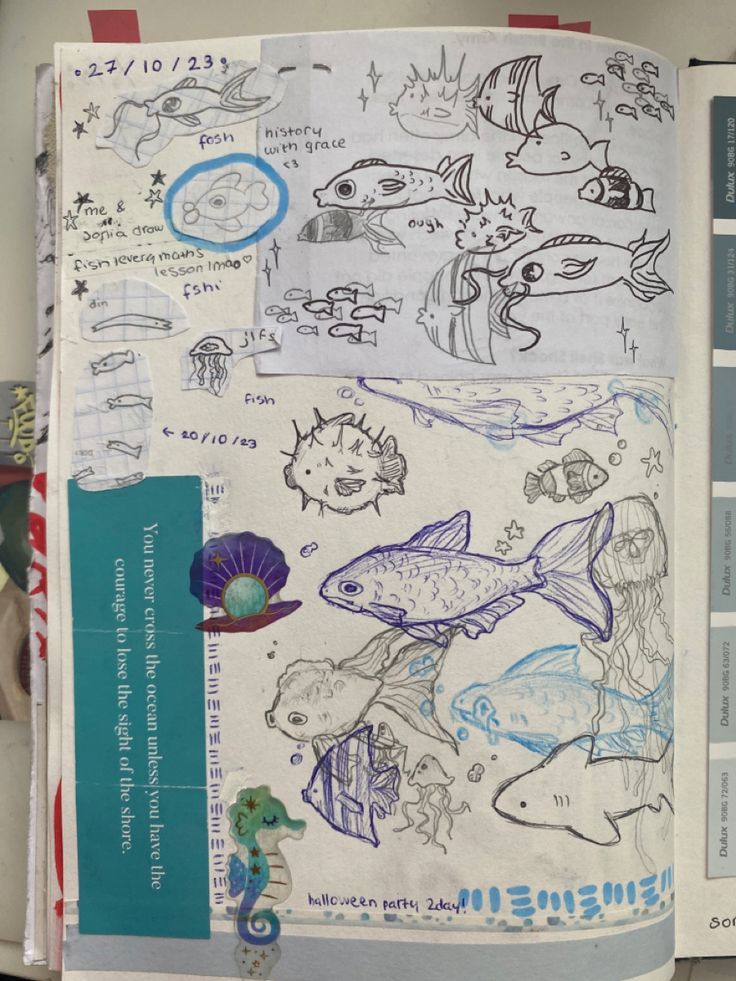 27/10/23
fosh
history
with grace
<3
me &
sophia draw
fish every maths
lesson lmao♡
ough
fshi
din
jlfs
fish
← 20/10/23
You never cross the ocean unless you have the
courage to lose the sight of the shore.
halloween party 2day!
Dulux 90BG 17/120
Dulux 90BG 31/124
Dulux
Dulux 90BG 56/088
Dulux 90BG 63/072
Dulux 90BG 72/063